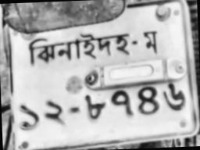 ঝিনাইদহ-ম
১২-৮৭৪৬